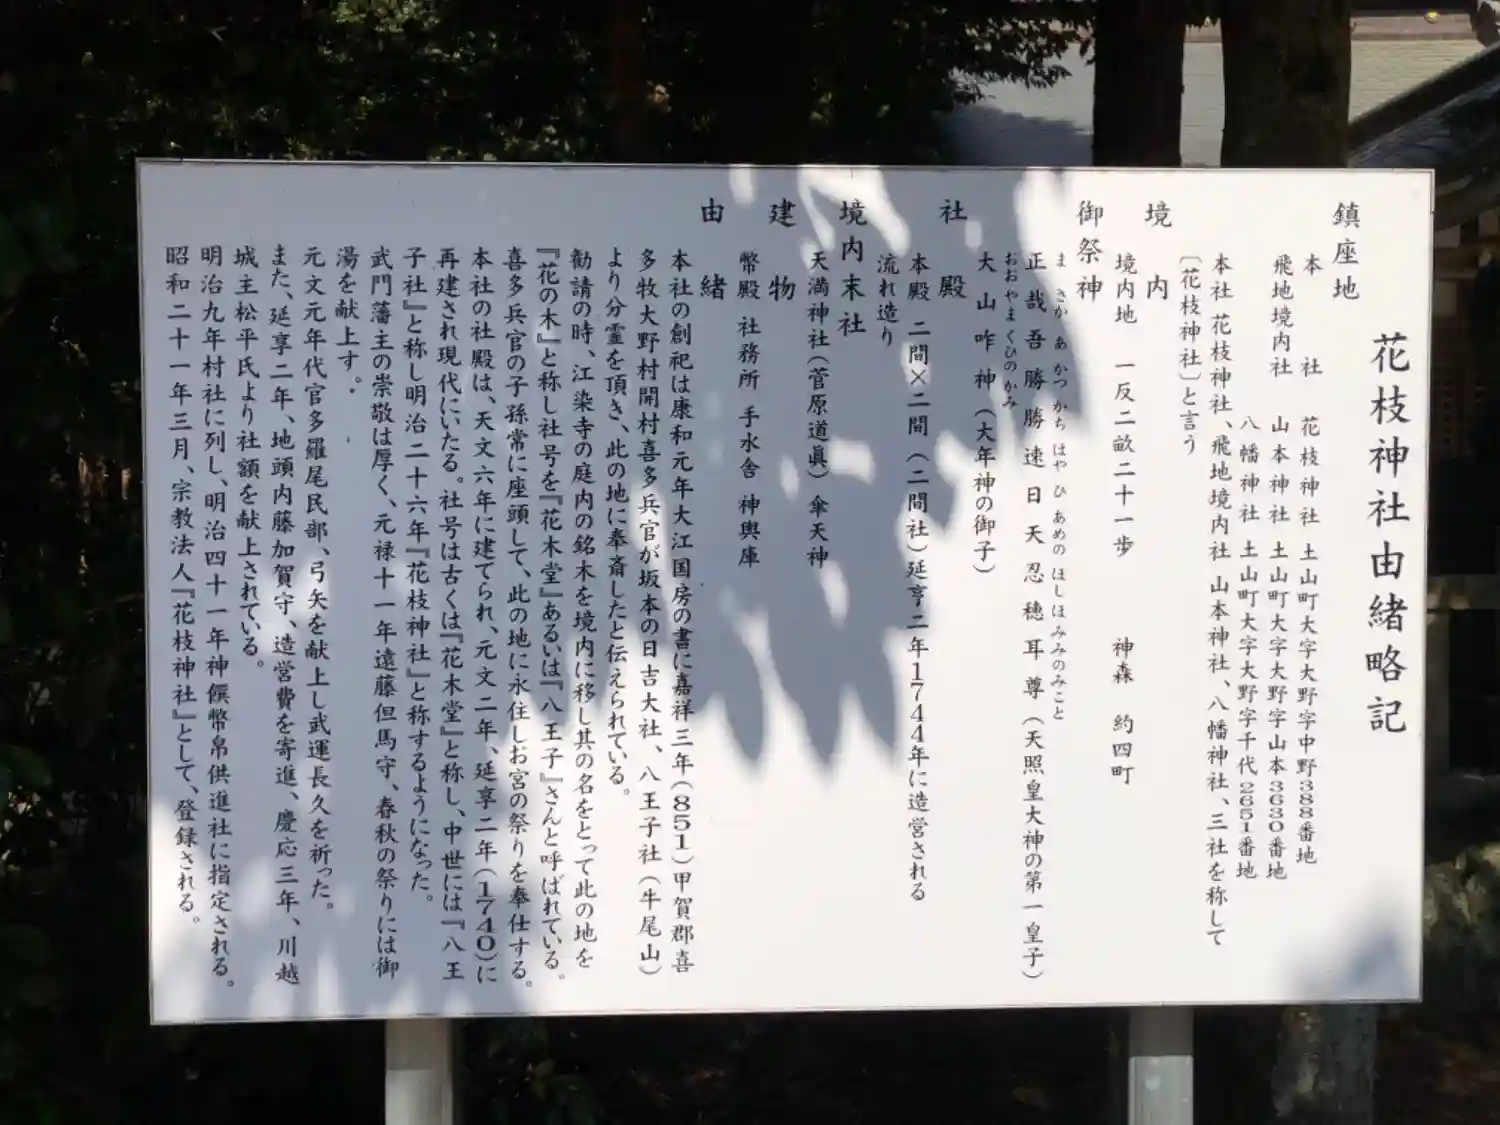 花枝神社由緒略記
鎮座地
本社 花枝神社 土山町大字大野字中野388番地
飛地境内社 山本神社 土山町大字大野字山本3630番地
八幡神社 土山町大字大野字千代2651番地
本社 花枝神社、飛地境内社 山本神社、八幡神社、三社を称して
〔花枝神社〕と言う
境内
境内地 一反二畝二十一歩 神森 約四町
御祭神
まさか あ かつ かち はや ひ あめの ほし ほ みみのみこと
正哉吾勝勝速日天忍穂耳尊(天照皇大神の第一皇子)
おおやまくひのかみ
大山咋神(大年神の御子)
社殿
本殿 二間×二間(二間社)延享二年1744年に造営される
流れ造り
境内末社
天満神社(菅原道眞) 傘天神
建物
幣殿 社務所 手水舎 神輿庫
由緒
本社の創祀は康和元年大江国房の書に嘉祥三年(851)甲賀郡喜
多牧大野村開村喜多兵官が坂本の日吉大社、八王子社(牛尾山)
より分霊を頂き、此の地に奉斎したと伝えられている。
勧請の時、江染寺の庭内の銘木を境内に移し其の名をとって此の地を
『花の木』と称し社号を『花木堂』あるいは『八王子』さんと呼ばれている。
喜多兵官の子孫常に座頭して、此の地に永住しお宮の祭りを奉仕する。
本社の社殿は、天文六年に建てられ、元文二年、延享二年(1740)に
再建され現代にいたる。社号は古くは『花木堂』と称し、中世には『八王
子社』と称し明治二十六年『花枝神社』と称するようになった。
武門藩主の崇敬は厚く、元禄十一年遠藤但馬守、春秋の祭りには御
湯を献上す。
元文元年代官多羅尾民部、弓矢を献上し武運長久を祈った。
また、延享二年、地頭内藤加賀守、造営費を寄進、慶応三年、川越
城主松平氏より社額を献上されている。
明治九年村社に列し、明治四十一年神饌幣帛供進社に指定される。
昭和二十一年三月、宗教法人『花枝神社』として、登録される。